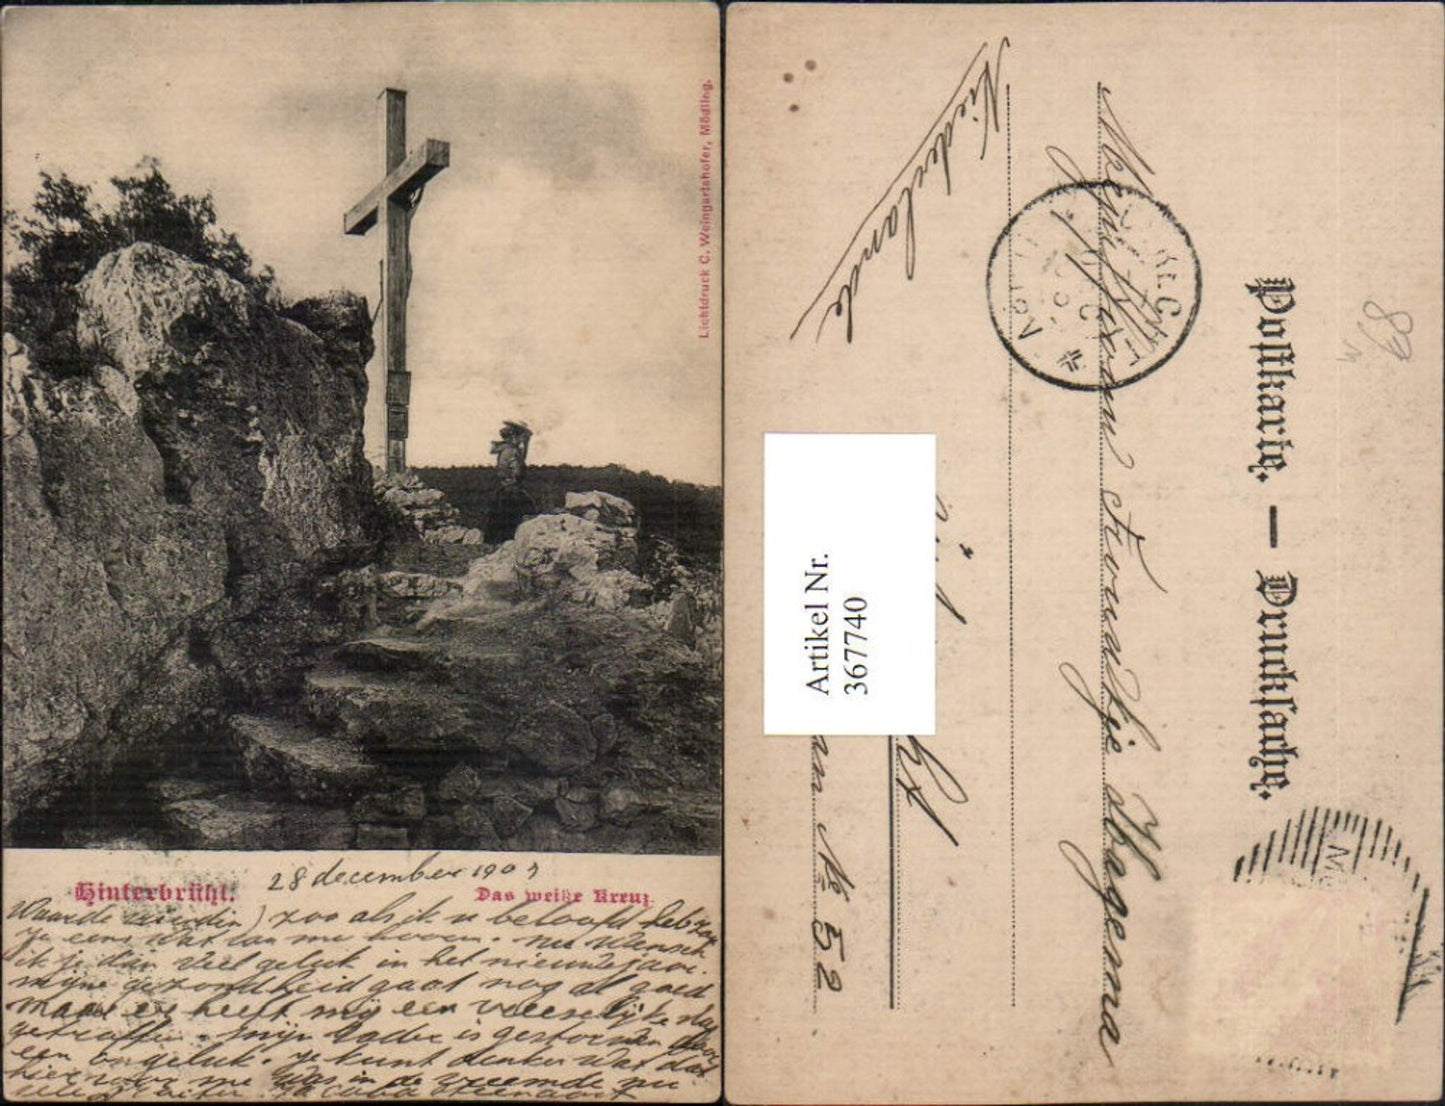 Lichtdruck C. Weingartshofer, Mödling.
Hinterbrühl.
28 december 190
Das weiße Kreuz.
Waarde vriendin) zoo als ik u beloofd heb
je eens wat van me hooren. nu wensch
ik je dan veel geluk in het nieuwejaar.
mijne gezondheid gaat nog al goed
maar er heeft mij een vreeselijke slag
getroffen. mijn Vader is gestorven door
een ongeluk. je kunt denken wat dat
hier voor me was in de vreemde nu
Niederlande
Artikel Nr.
367740
No 52
Mejuffrouw Froukje Hagema
Postkarte. — Drucksache.
89